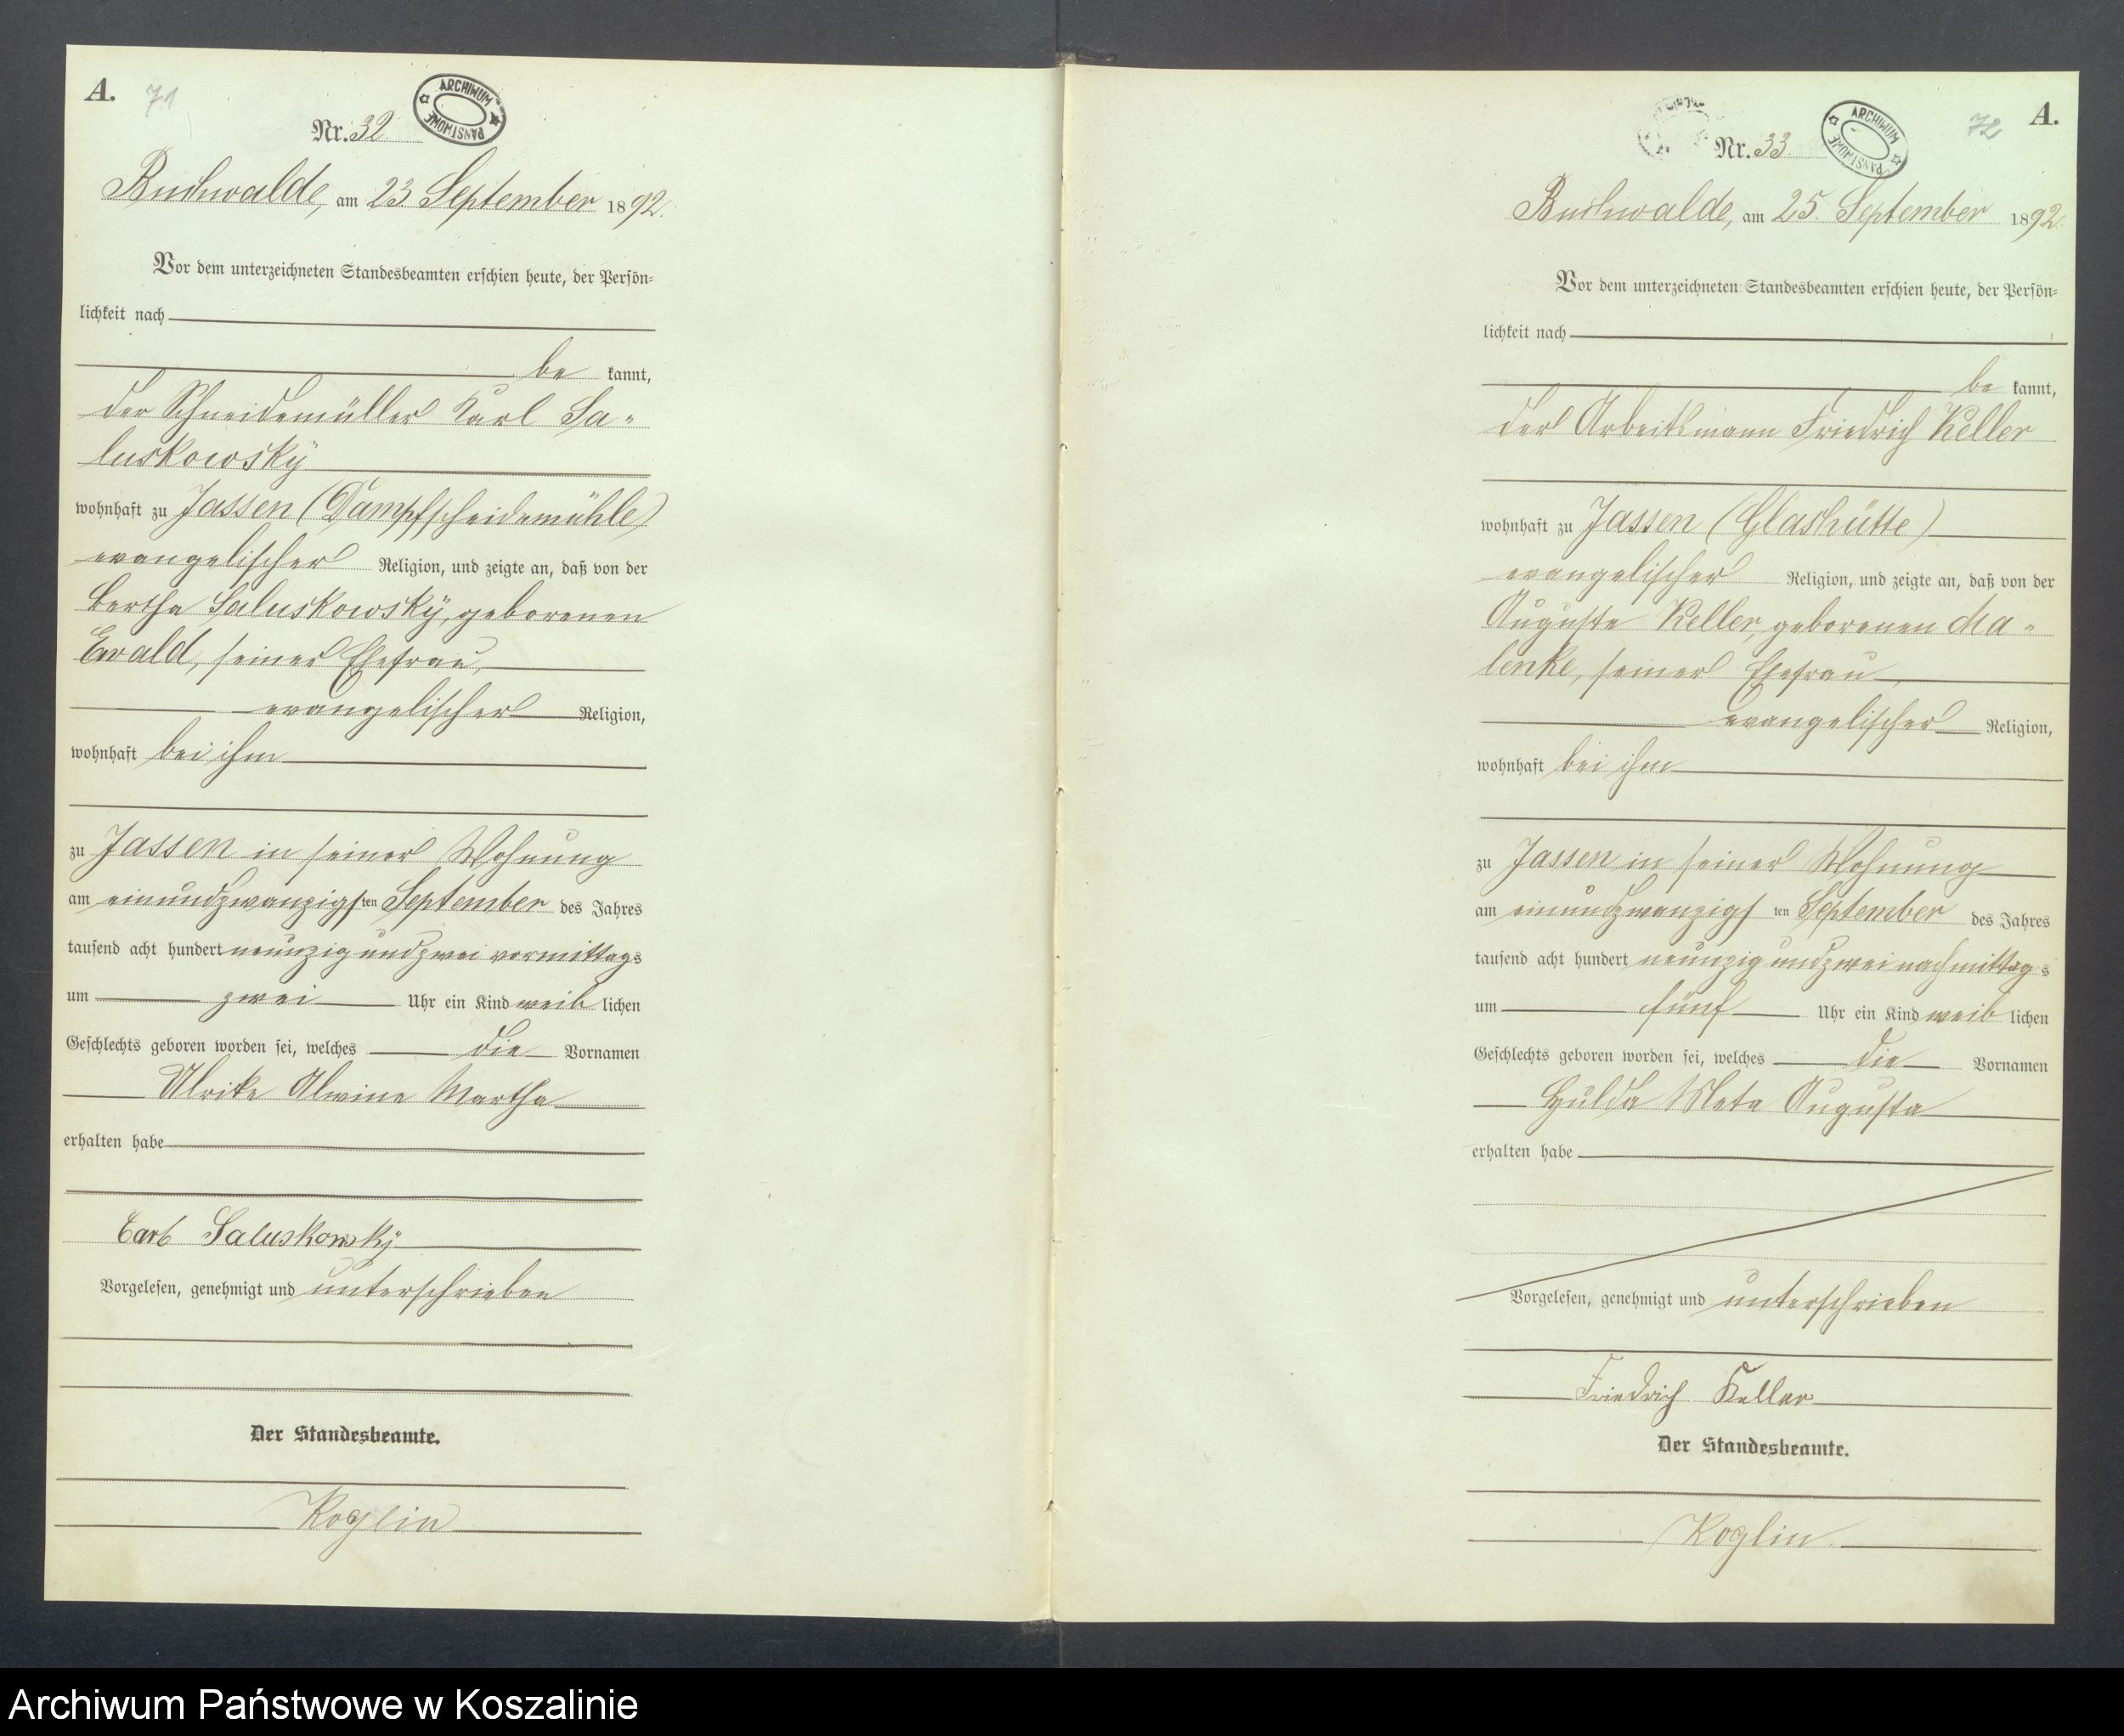 A. 71
Nr. 32
ARCHIWUM PAŃSTWOWE
Buchwalde, am 23 September 1892.
Vor dem unterzeichneten Standesbeamten erschien heute, der Persön-
lichkeit nach
be kannt,
der Schneidemüller Karl Sa-
luskowsky
wohnhaft zu Jassen (Dampfscheidemühle)
evangelischer Religion, und zeigte an, daß von der
Bertha Saluskowsky, geborenen
Ewald, seiner Ehefrau,
evangelischer Religion,
wohnhaft bei ihm
zu Jassen in seiner Wohnung
am einundzwanzigsten September des Jahres
tausend acht hundert neunzig und zwei vormittags
um zwei Uhr ein Kind weib lichen
Geschlechts geboren worden sei, welches die Vornamen
Ulrike Alwine Martha
erhalten habe
Carl Saluskowsky
Vorgelesen, genehmigt und unterschrieben
Der Standesbeamte.
Koglin
72 A.
Nr. 33.
ARCHIWUM PAŃSTWOWE
Buchwalde, am 25. September 1892.
Vor dem unterzeichneten Standesbeamten erschien heute, der Persön-
lichkeit nach
be kannt,
der Arbeitsmann Friedrich Keller
wohnhaft zu Jassen (Glashütte)
evangelischer Religion, und zeigte an, daß von der
Auguste Keller, geborenen Ma-
lenke, seiner Ehefrau
evangelischer Religion,
wohnhaft bei ihm
zu Jassen in seiner Wohnung
am einundzwanzigs ten September des Jahres
tausend acht hundert neunzig und zwei nachmittag s
um fünf Uhr ein Kind weib lichen
Geschlechts geboren worden sei, welches die Vornamen
Hulda Meta Augusta
erhalten habe
Vorgelesen, genehmigt und unterschrieben
Friedrich Keller
Der Standesbeamte.
Koglin.
Archiwum Państwowe w Koszalinie